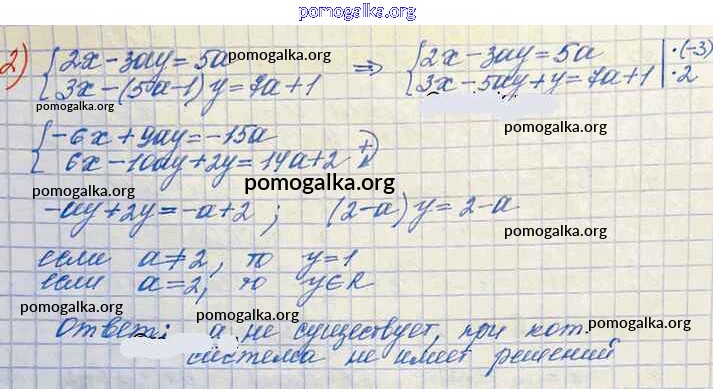 pomogalka.org
2) {2x-3ay=5a pomogalka.org => {2x-3ay=5a |·(-3)
{3x-(5a-1)y=7a+1 {3x-5ay+y=7a+1 |·2
pomogalka.org
{-6x+9ay=-15a
{6x-10ay+2y=14a+2 (+)
pomogalka.org
pomogalka.org
-ay+2y=-a+2; (2-a)y=2-a
pomogalka.org
если a≠2, то y=1
если a=2, то y∈R
pomogalka.org pomogalka.org
Ответ: a не существует, при кот. pomogalka.org
система не имеет решений